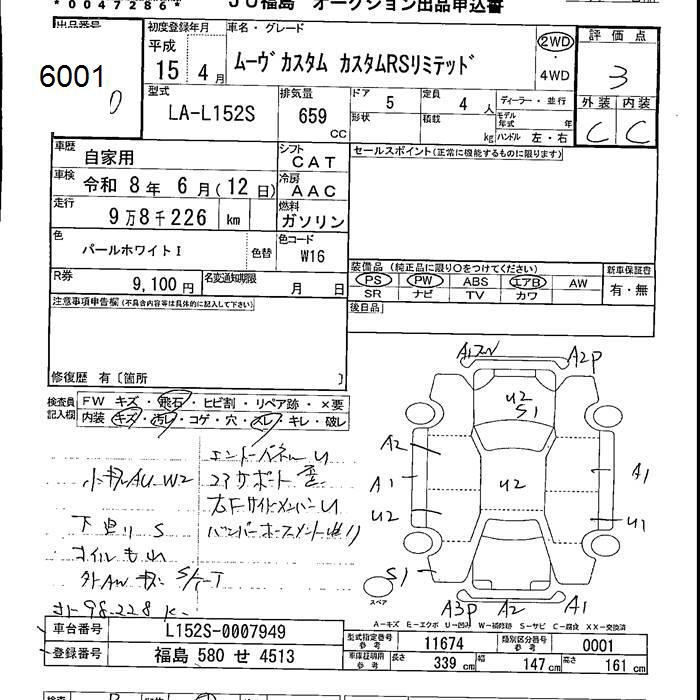 *0047286*
JU福島 オークション出品申込書
出品番号
6001
初度登録年月
平成
15年 4月
車名・グレード
ムーヴカスタム カスタムRSリミテッド
2WD
・
4WD
評価点
3
外装 内装
C C
型式
LA-L152S
排気量
659
CC
ドア
5
定員
4 人
形状
積載
kg
ディーラー・並行
モデル年式 年
ハンドル 左・右
車歴
自家用
シフト
CAT
セールスポイント(正常に機能するものに限ります)
車検
令和 8年 6月(12日)
冷房
AAC
走行
9万8千226 km
燃料
ガソリン
色
パールホワイトI
色替
色コード
W16
装備品 (純正品に限り○をつけてください)
PS PW ABS エアB AW
SR ナビ TV カワ
新車保証書
有・無
R券
9,100円
名変通知期限
月 日
後日品
注意事項申告欄(不具合内容等は具体的に記入して下さい)
修復歴 有〔箇所 〕
検査員記入欄
FW キズ・飛石・ヒビ割・リペア跡・×要
内装 キズ・汚レ・コゲ・穴・スレ・キレ・破レ
小キズAU W2
下廻り S
コイルもれ
A2P
U2
S1
A2
A1
U2
U2
A1
U1
S1
A3P
A2
A1
スペア
A-キズ E-エクボ U-凹ミ W-補修跡 S-サビ C-腐食 XX-交換済
車台番号
L152S-0007949
登録番号
福島 580 せ 4513
型式指定番号
参考
11674
類別区分番号
参考
0001
車庫証明用
参考
長さ
339 cm
幅
147 cm
高さ
161 cm